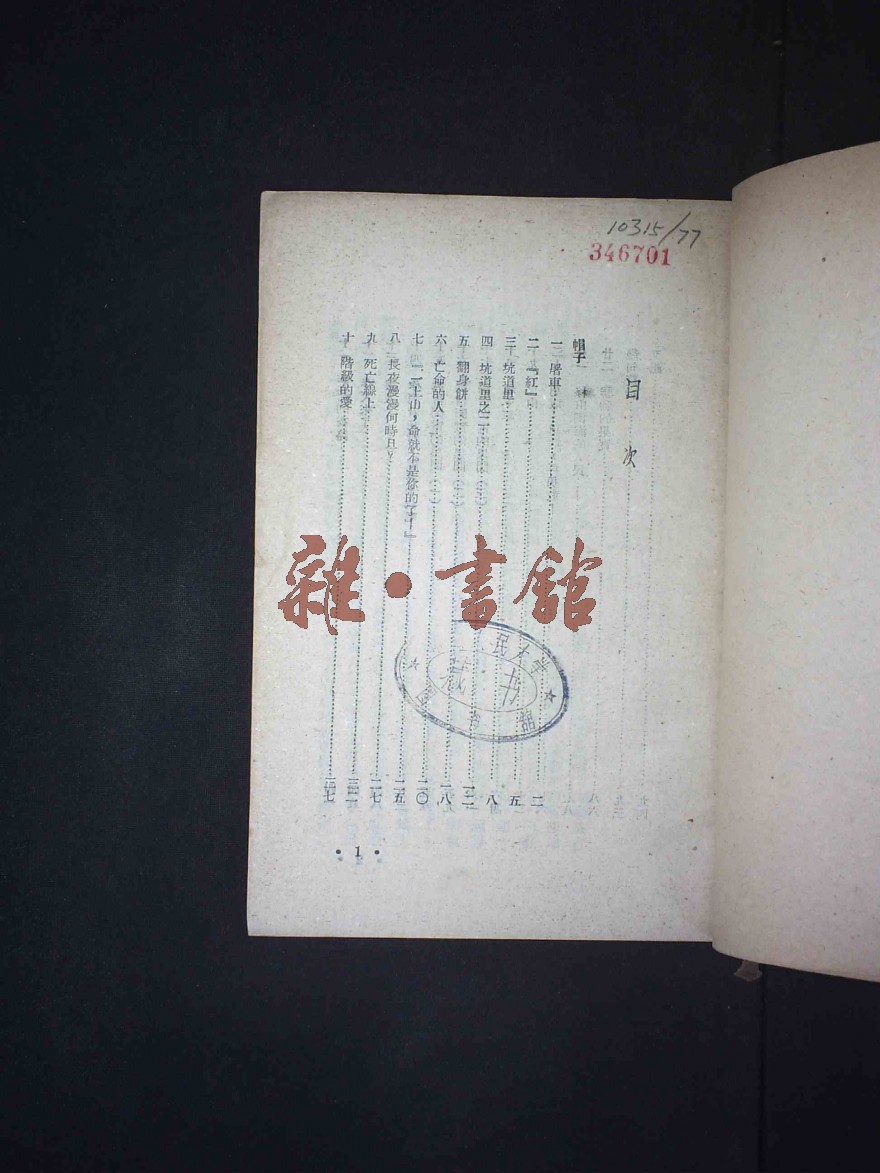 10315/77
346701
目次
帽子
一 屠車 二
二 『紅』 五
三 坑道里 八
四 坑道里之二 一二
五 翻身餅 一八
六 亡命的人 二〇
七 『一上山，命就不是你的了！』 二五
八 長夜漫漫何時旦？ 二七
九 死亡線上
十 階級的愛
• 1 •
雜•書館